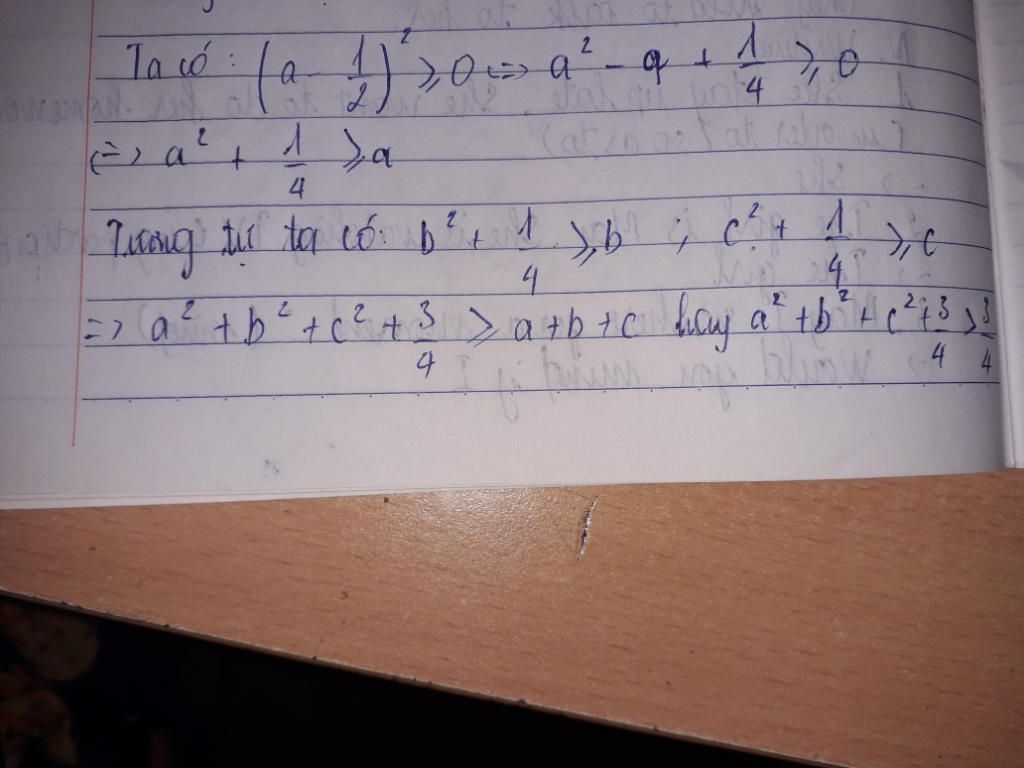 Ta có: (a - 1/2)² ≥ 0 <=> a² - a + 1/4 ≥ 0
<=> a² + 1/4 ≥ a
Tương tự ta có: b² + 1/4 ≥ b ; c² + 1/4 ≥ c
=> a² + b² + c² + 3/4 ≥ a + b + c hay a² + b² + c² + 3/4 ≥ 3/4